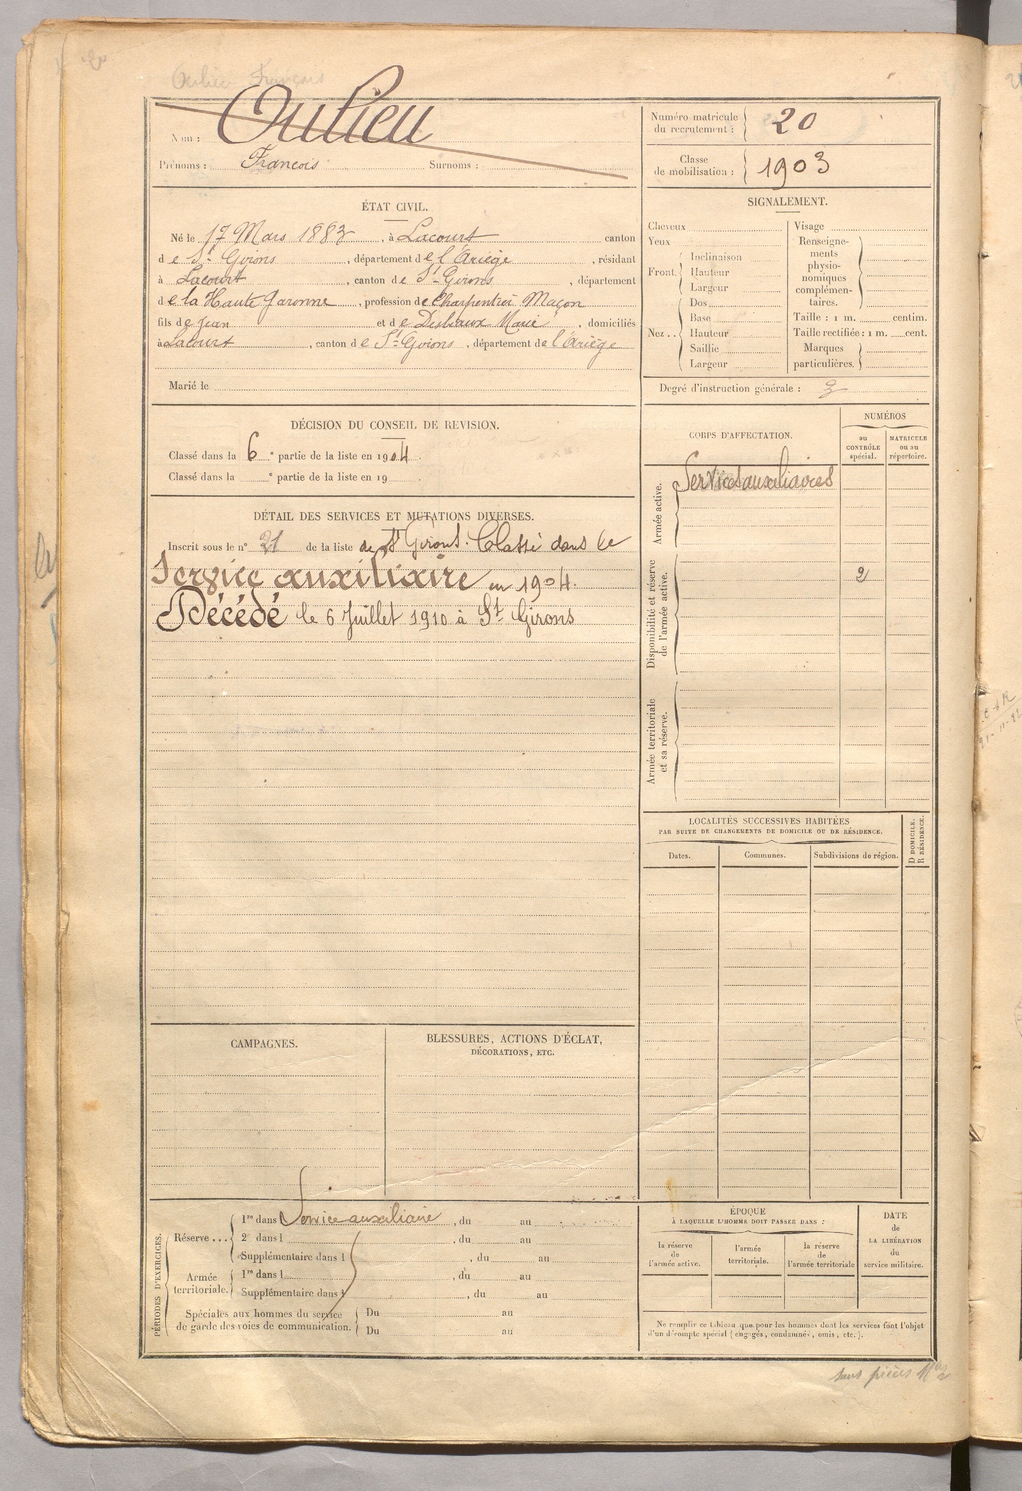 Oulieu François
Oulieu
Nom :
Prénoms : François Surnoms :
Numéro matricule du recrutement : 20
Classe de mobilisation : 1903
ÉTAT CIVIL.
Né le 17 Mars 1883, à Lacourt canton
de St Girons, département de l'Ariège, résidant
à Lacourt, canton de St Girons, département
de la Haute Garonne, profession de Charpentier Maçon
fils de Jean et de Desbiaux Marie, domiciliés
à Lacourt, canton de St Girons, département de l'Ariège
Marié le
SIGNALEMENT.
Cheveux
Yeux
Front. Inclinaison
Hauteur
Largeur
Nez.. Dos
Base
Hauteur
Saillie
Largeur
Visage
Renseigne-
ments
physio-
nomiques
complémen-
taires.
Taille : 1 m. centim.
Taille rectifiée : 1 m. cent.
Marques
particulières.
Degré d'instruction générale : 3
DÉCISION DU CONSEIL DE REVISION.
Classé dans la 6e partie de la liste en 1904.
Classé dans la e partie de la liste en 19
DÉTAIL DES SERVICES ET MUTATIONS DIVERSES.
Inscrit sous le n° 21 de la liste de St Girons. Classé dans le
Service auxiliaire en 1904.
Décédé le 6 Juillet 1910 à St Girons
CORPS D'AFFECTATION.
NUMÉROS
au
CONTRÔLE
spécial.
MATRICULE
ou au
répertoire.
Armée active.
Services auxiliaires
Disponibilité et réserve
de l'armée active.
2
Armée territoriale
et sa réserve.
LOCALITÉS SUCCESSIVES HABITÉES
PAR SUITE DE CHANGEMENTS DE DOMICILE OU DE RÉSIDENCE.
Dates. Communes. Subdivisions de région.
D DOMICILE.
R RÉSIDENCE.
CAMPAGNES.
BLESSURES, ACTIONS D'ÉCLAT,
DÉCORATIONS, ETC.
PÉRIODES D'EXERCICES.
Réserve ...
1re dans Service auxiliaire, du au
2e dans l , du au
Supplémentaire dans l , du au
Armée
territoriale.
1re dans l , du au
Supplémentaire dans l , du au
Spéciales aux hommes du service
de garde des voies de communication.
Du au
Du au
ÉPOQUE
À LAQUELLE L'HOMME DOIT PASSER DANS :
la réserve
de
l'armée active.
l'armée
territoriale.
la réserve
de
l'armée territoriale
DATE
de
LA LIBÉRATION
du
service militaire.
Ne remplir ce tableau que pour les hommes dont les services font l'objet
d'un décompte spécial (engagés, condamnés, omis, etc.).
sans pièces